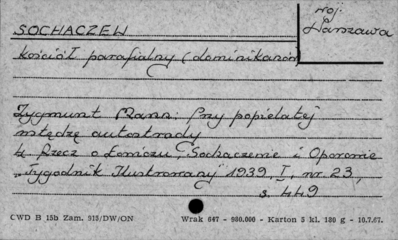 woj.
Warszawa
SOCHACZEW
Kościół parafialny (dominikanów)
Zygmunt Mann: Przy popielatej
wstędze autostrady
4. Rzecz o Łowiczu, Sochaczewie i Oporowie
"Tygodnik Ilustrowany" 1939, I, nr. 23,
s. 449
CWD B 15b Zam. 919/DW/ON Wrak 647 - 980.000 - Karton 5 kl. 180 g - 10.7.67.